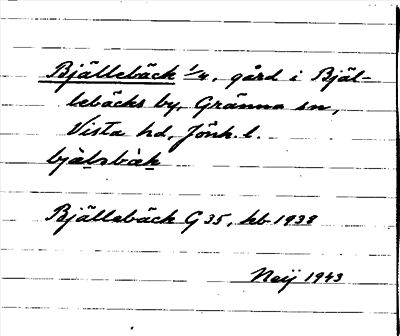 Bjällebäck 1/4, gård i Bjäl-
lebäcks by, Gränna sn,
Vista hd, Jönk. l.
bjälsbäk
Bjällebäck G 35, kb 1938
Neij 1943